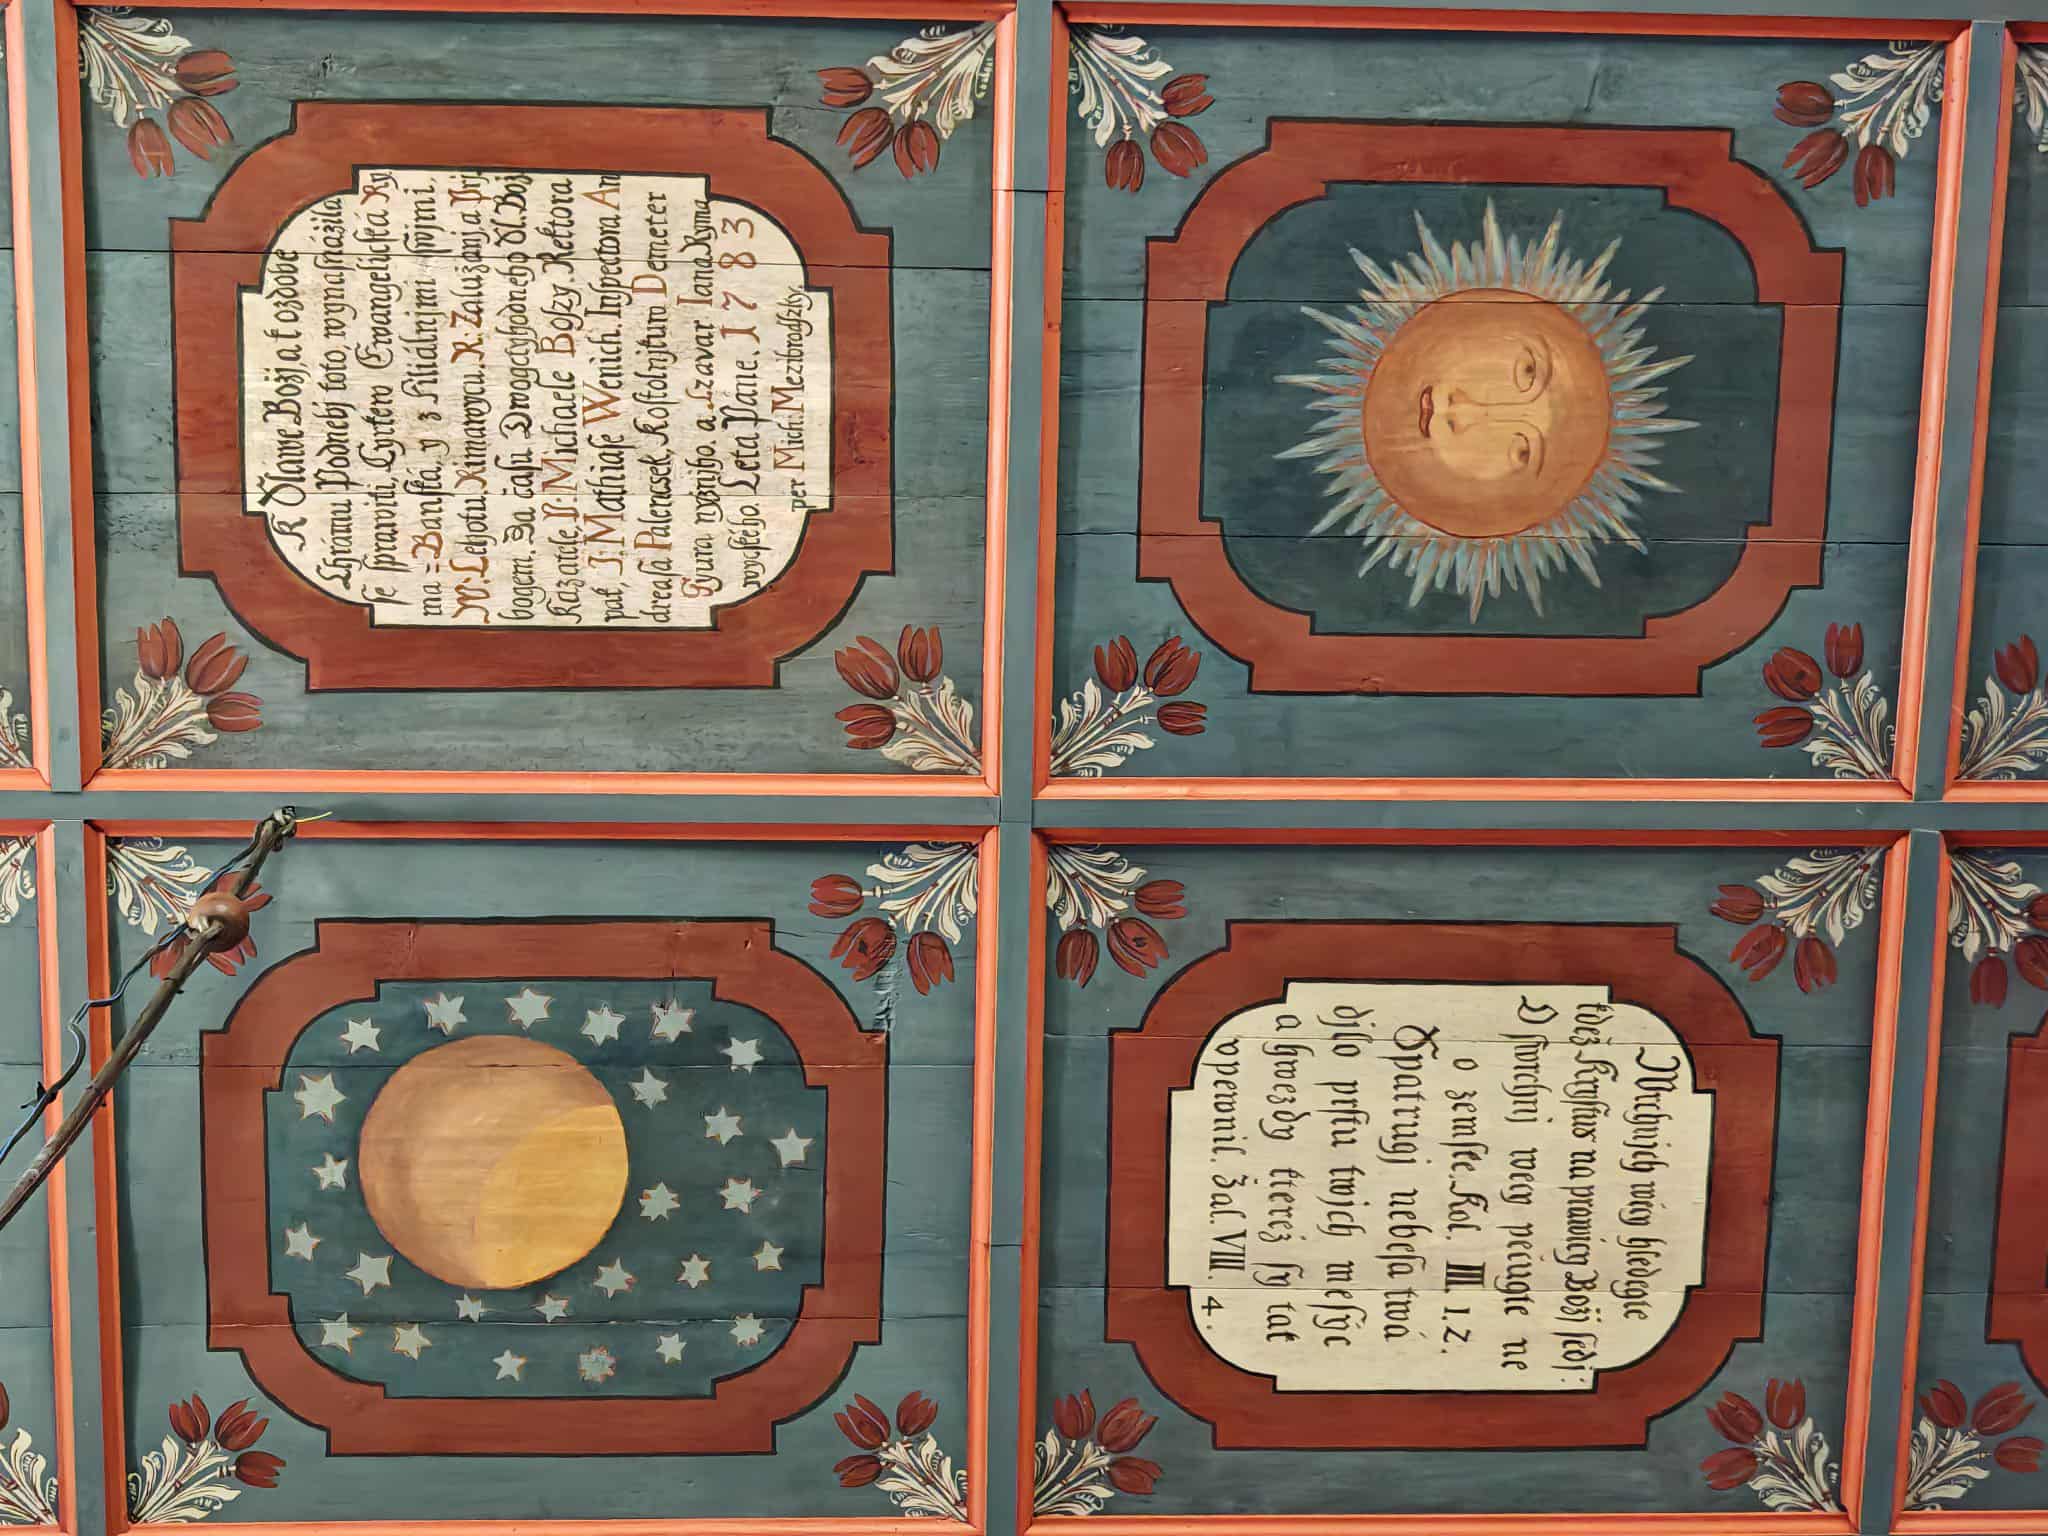 K Slawe Božj, a k ozdobe
Chrámu Podnebj toto, wynasnážila
se sprawiti, Cyrkew Ewangelicka Ry
ma=Banská, y z Filiálnjmi swými,
W: Lehotu, Rimawycu. R. Zalužanj, a Prj
bogem. Za času Dwogctyhodneho Sl. Bož
Kazatele, P: Michaele Boszy, Rektora
pak, J: Mathiase Wenich. Inspectora An
dreasa Palencsek, Kostolnjkuw Demeter
Gyura nyžnjho. a Lzavar Iana Ryma
wyckeho. Leta Páne. 1783
per Mich: Mezibrodszky.
Wrchnjch wécy hledegte
kdež Krystus na prawicy Božj sedj:
O swrchnj wecy pečugte ne
o zemske. Kol. III. 1. 2.
Spatrugj nebesa twá
djlo prstu twjch mesýc
a hwezdy kterez sy tak
vpewnil. Žal. VIII. 4.